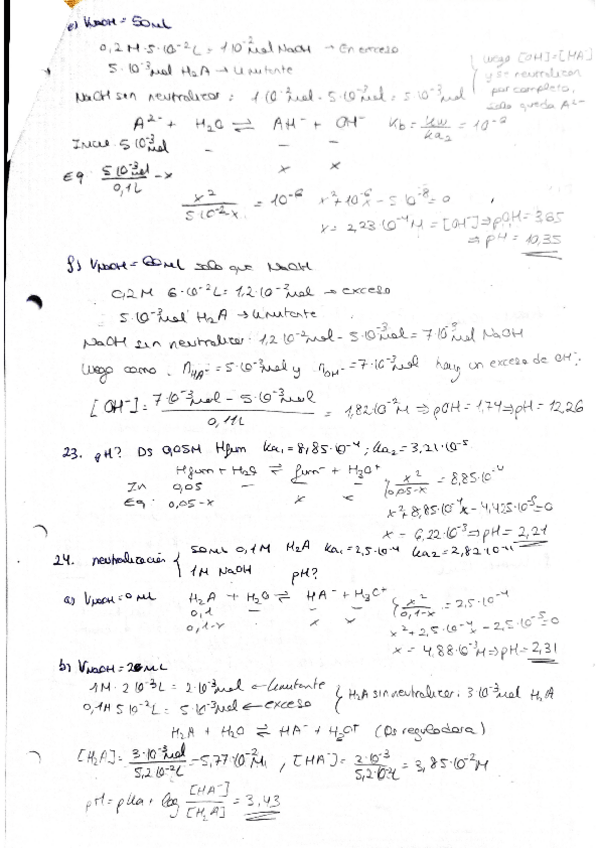 e) VNaOH = 50 mL
0,2 M · 5·10⁻² L = 1·10⁻² mol NaOH → En exceso
5·10⁻³ mol H₂A → Limitante
luego [OH⁻] = [HA⁻]
y se neutralizan
por completo,
solo queda A²⁻
NaOH sin neutralizar = 1·10⁻² mol - 5·10⁻³ mol = 5·10⁻³ mol
A²⁻ + H₂O ⇌ AH⁻ + OH⁻ Kb = Kw/Ka₂ = 10⁻⁶
Inic. 5·10⁻³ mol - - -
Eq 5·10⁻³/0,1L - x x x
x²/5·10⁻²-x = 10⁻⁶ x² + 10⁻⁶x - 5·10⁻⁸ = 0
x = 2,23·10⁻⁴ M = [OH⁻] ⇒ pOH = 3,65
⇒ pH = 10,35
f) VNaOH = 60 mL solo que NaOH
0,2 M 6·10⁻² L = 1,2·10⁻² mol → exceso
5·10⁻³ mol H₂A → Limitante
NaOH sin neutralizar: 1,2·10⁻² mol - 5·10⁻³ mol = 7·10⁻³ mol NaOH
luego como: nHA⁻ = 5·10⁻³ mol y nOH⁻ = 7·10⁻³ mol hay un exceso de OH⁻:
[OH⁻] = 7·10⁻³ mol - 5·10⁻³ mol / 0,11L = 1,82·10⁻² M ⇒ pOH = 1,74 ⇒ pH = 12,26
23. pH? Ds 0,05M Hfum Ka₁ = 8,85·10⁻⁴; Ka₂ = 3,21·10⁻⁵
Hfum + H₂O ⇌ fum⁻ + H₃O⁺
In 0,05 - - -
Eq: 0,05-x x x
x²/0,05-x = 8,85·10⁻⁴
x² + 8,85·10⁻⁴x - 4,425·10⁻⁵ = 0
x = 6,22·10⁻³ ⇒ pH = 2,21
24. neutralización { 50 mL 0,1 M H₂A Ka₁ = 2,5·10⁻⁴ Ka₂ = 2,82·10⁻¹¹
1M NaOH pH?
a) VNaOH = 0 mL H₂A + H₂O ⇌ HA⁻ + H₃O⁺
0,1 - - -
0,1-x x x
x²/0,1-x = 2,5·10⁻⁴
x² + 2,5·10⁻⁴x - 2,5·10⁻⁵ = 0
x = 4,88·10⁻³ M ⇒ pH = 2,31
b) VNaOH = 2 mL
1M · 2·10⁻³ L = 2·10⁻³ mol ← Limitante
0,1M 5·10⁻² L = 5·10⁻³ mol ← exceso
H₂A sin neutralizar: 3·10⁻³ mol H₂A
H₂A + H₂O ⇌ HA⁻ + H₃O⁺ (Ds reguladora)
[H₂A] = 3·10⁻³ mol/5,2·10⁻² L = 5,77·10⁻² M, [HA⁻] = 2·10⁻³/5,2·10⁻² L = 3,85·10⁻² M
pH = pKa + log [HA⁻]/[H₂A] = 3,43